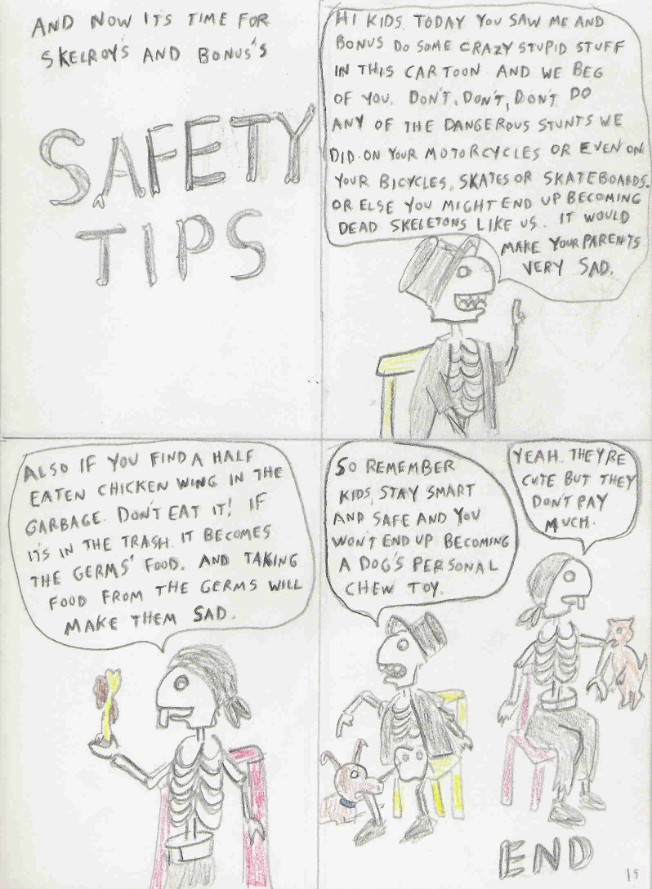 AND NOW ITS TIME FOR
SKELROY'S AND BONUS'S
SAFETY
TIPS
HI KIDS. TODAY YOU SAW ME AND
BONUS DO SOME CRAZY STUPID STUFF
IN THIS CARTOON AND WE BEG
OF YOU. DON'T, DON'T, DON'T DO
ANY OF THE DANGEROUS STUNTS WE
DID ON YOUR MOTORCYCLES OR EVEN ON
YOUR BICYCLES, SKATES OR SKATEBOARDS.
OR ELSE YOU MIGHT END UP BECOMING
DEAD SKELETONS LIKE US. IT WOULD
MAKE YOUR PARENTS
VERY SAD.
ALSO IF YOU FIND A HALF
EATEN CHICKEN WING IN THE
GARBAGE. DON'T EAT IT! IF
IT'S IN THE TRASH. IT BECOMES
THE GERMS' FOOD. AND TAKING
FOOD FROM THE GERMS WILL
MAKE THEM SAD.
SO REMEMBER
KIDS, STAY SMART
AND SAFE AND YOU
WON'T END UP BECOMING
A DOG'S PERSONAL
CHEW TOY.
YEAH. THEY'RE
CUTE BUT THEY
DON'T PAY
MUCH.
END